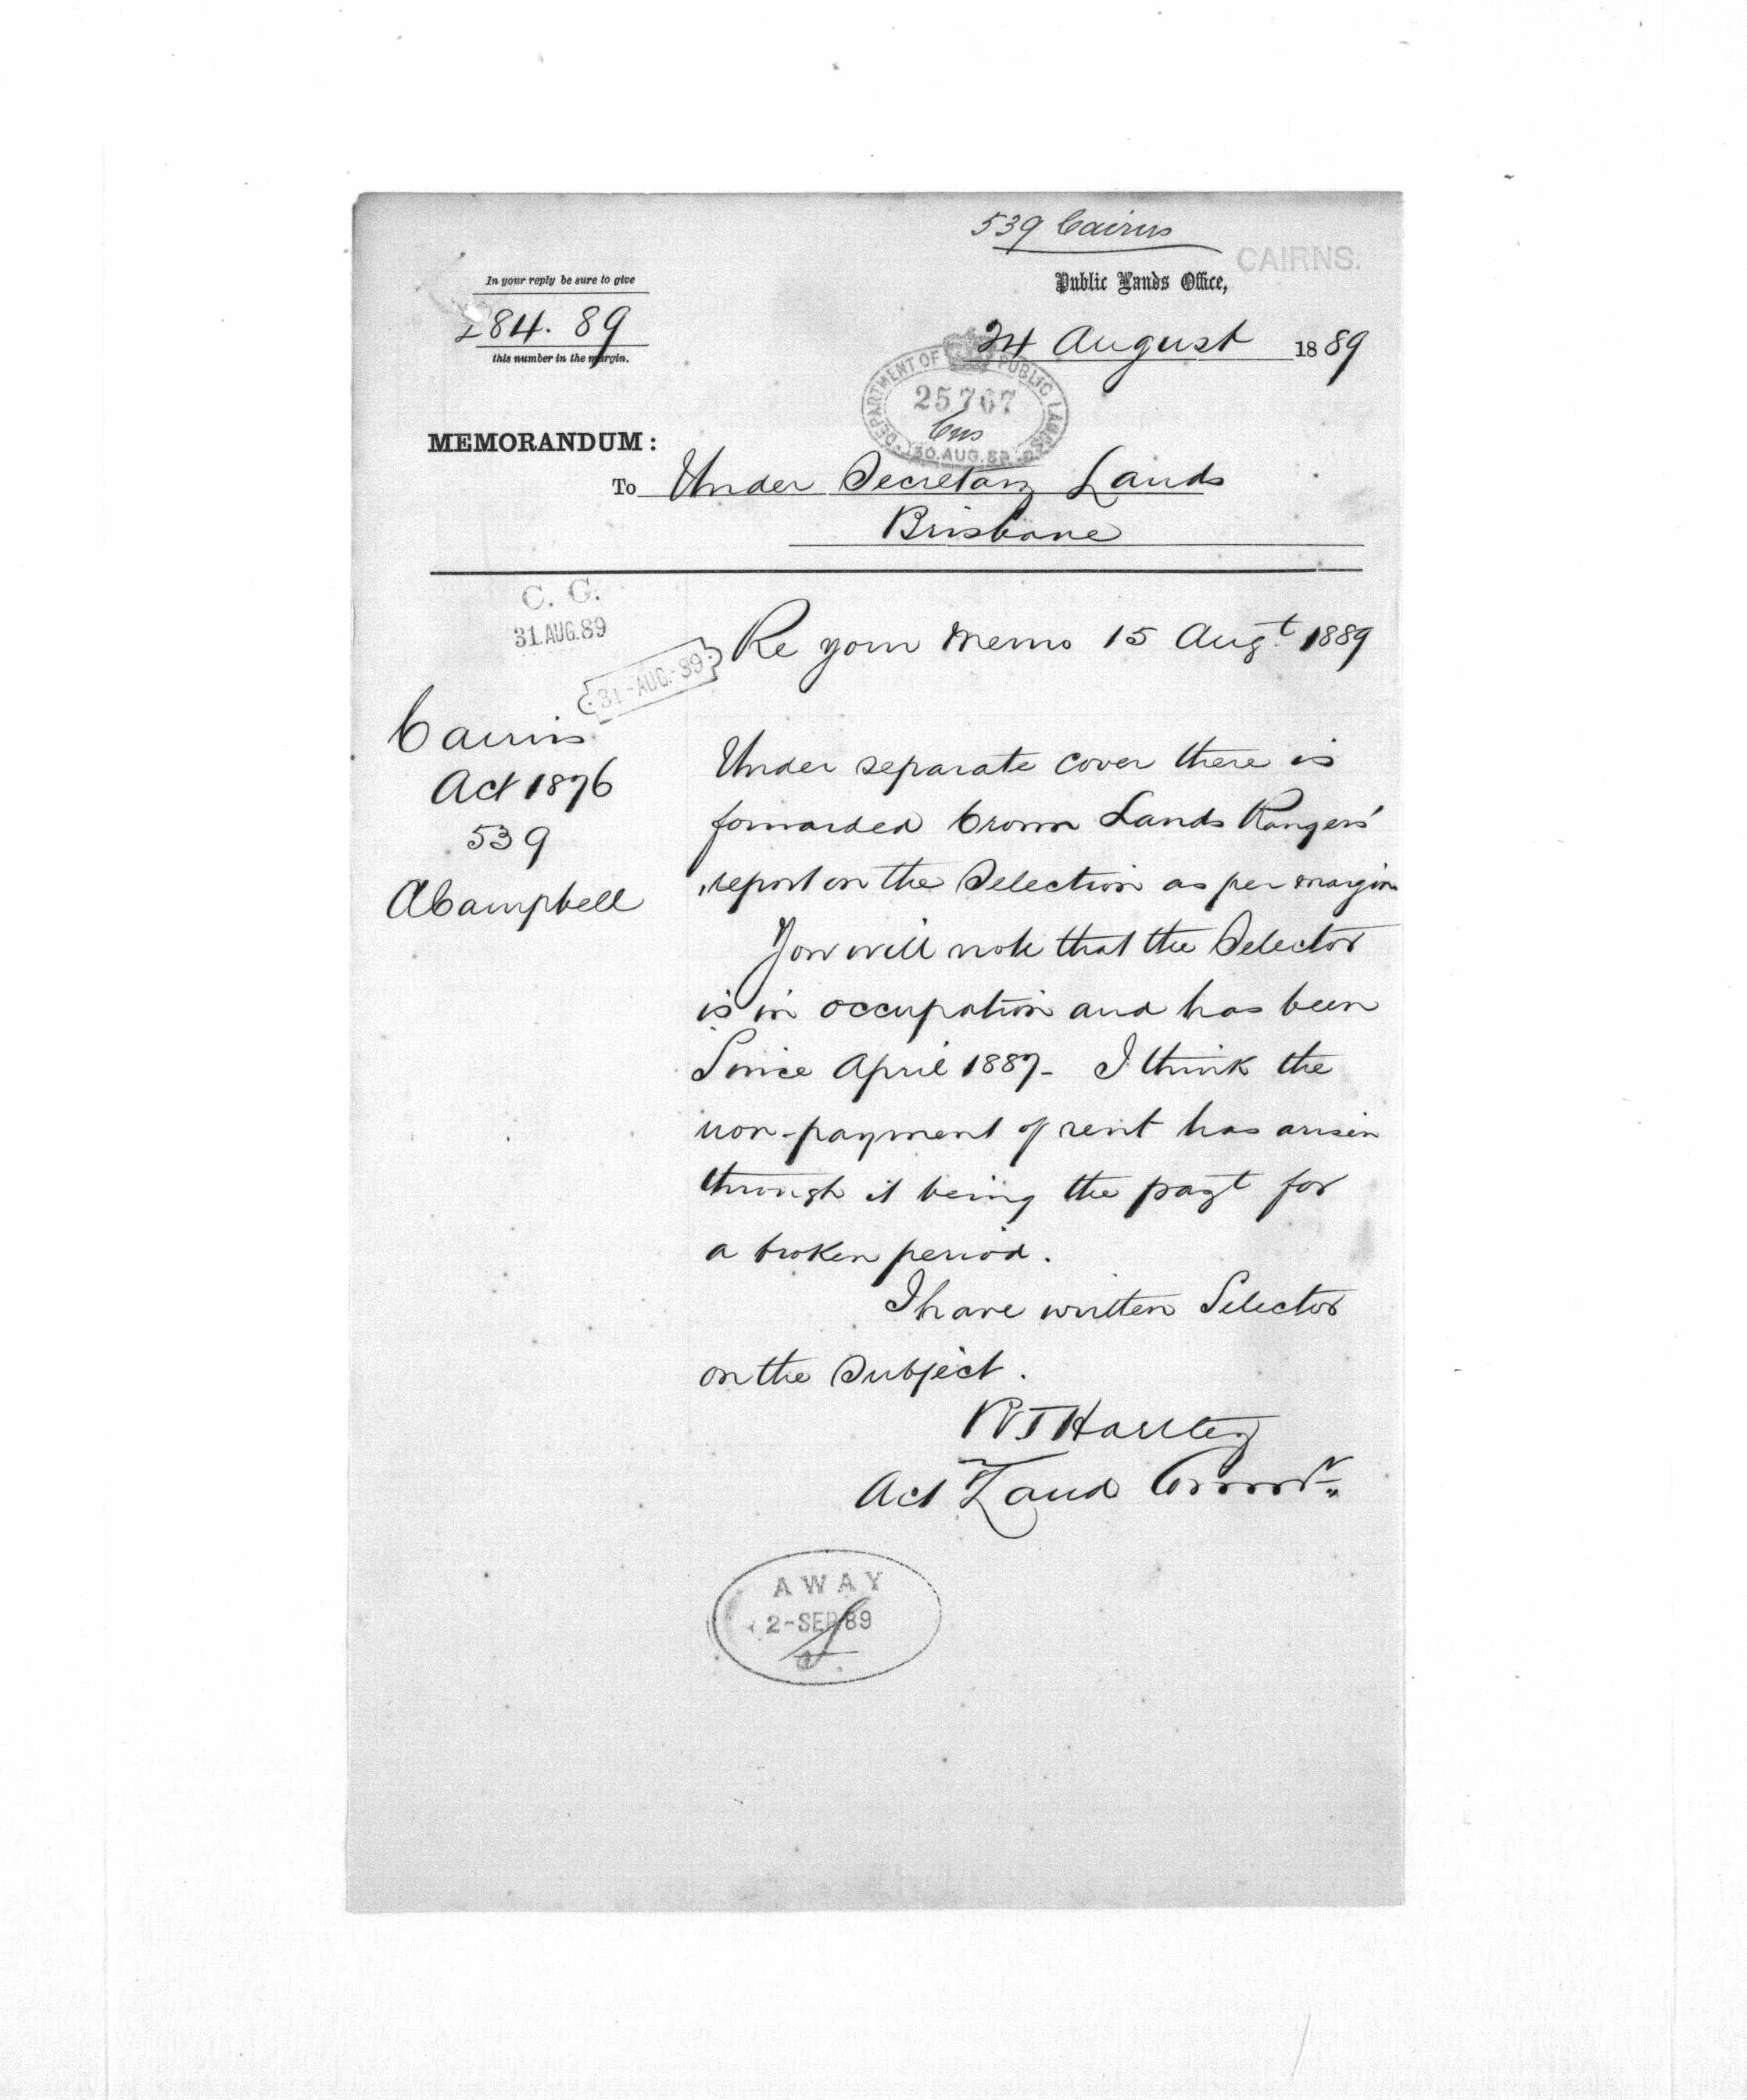 539 Cairns
CAIRNS.
In your reply be sure to give
Public Lands Office,
284. 89
this number in the margin.
24 August 1889
DEPARTMENT OF PUBLIC LANDS
25767
Cns
30.AUG.89
MEMORANDUM:
To Under Secretary Lands
Brisbane
C. G.
31.AUG.89
31-AUG.-89
Re your Memo 15 Augt. 1889
Cairns
Act 1876
539
ACampbell
Under separate cover there is
forwarded Crown Lands Rangers'
report on the Selection as per margin
You will note that the Selector
is in occupation and has been
Since April 1887- I think the
non-payment of rent has arisen
through it being the payt for
a broken period.
I have written Selector
on the Subject.
Hartley
Act Land Commr.
AWAY
2-SEP 89